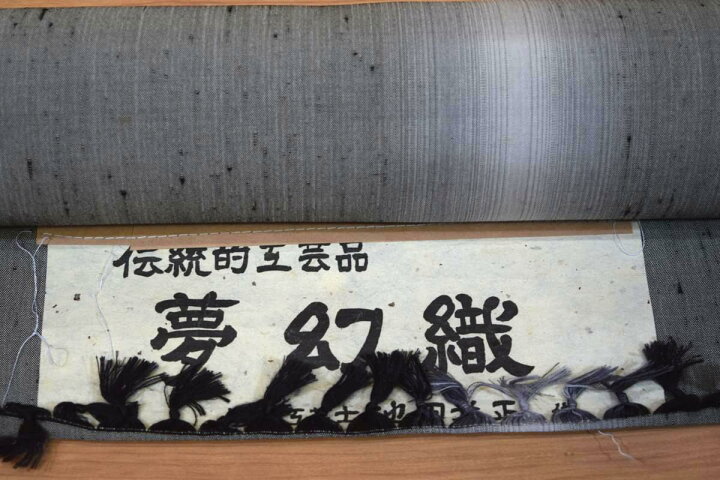 伝統的工芸品
夢幻織